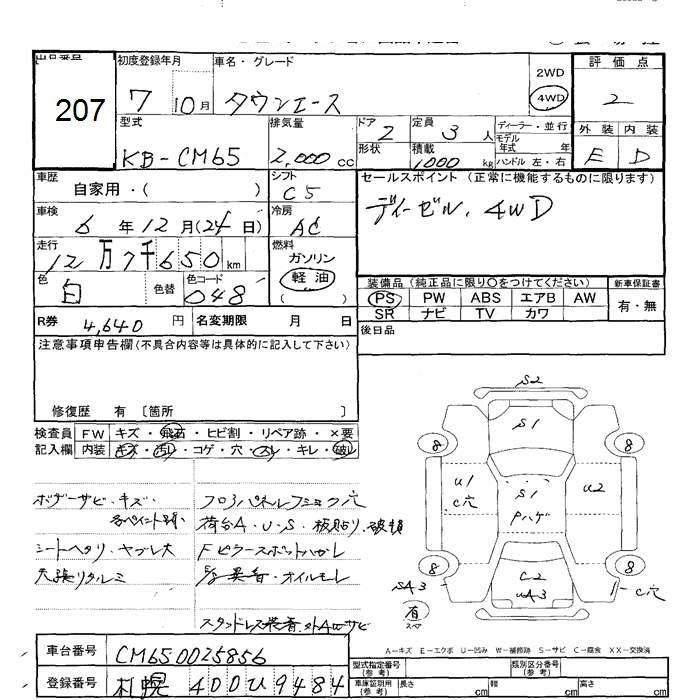 出品番号
207
初度登録年月
7 10月
車名・グレード
タウンエース
2WD
4WD
評価点
2
型式
KB-CM65
排気量
2,000 cc
ドア
2
定員
3 人
ディーラー・並行
モデル年式 年
形状
積載
1000 kg
ハンドル 左・右
外装 内装
E D
車歴
自家用・( )
シフト
C5
セールスポイント (正常に機能するものに限ります)
ディーゼル、4WD
車検
6 年 12 月 (24 日)
冷房
AC
走行
12万7千650 km
燃料
ガソリン
軽油
( )
色
白
色替
色コード
048
装備品 (純正品に限り○をつけてください)
PS PW ABS エアB AW
SR ナビ TV カワ
新車保証書
有・無
R券 4,640 円
名変期限 月 日
後日品
注意事項申告欄(不具合内容等は具体的に記入して下さい)
修復歴 有 〔箇所 〕
検査員記入欄
FW キズ・飛石・ヒビ割・リペア跡・×要
内装 キズ・汚レ・コゲ・穴・スレ・キレ・破レ
ボデーサビ・キズ・
シートヘタリ・ヤブレ大
天張リタルミ
荷台A・U・S・板貼リ・破損
Fピラースポットハガレ
オイルモレ
S2
S1
8
8
U1
C穴
S1
Pハゲ
U2
8
8
C2
UA3
SA3
C穴
有
スペ
A-キズ E-エクボ U-凹み W-補修跡 S-サビ C-腐食 XX-交換済
車台番号
CM650025856
登録番号
札幌 400ひ9484
型式指定番号
(参考)
類別区分番号
(参考)
車庫証明用
(参考)
長さ cm
幅 cm
高さ cm